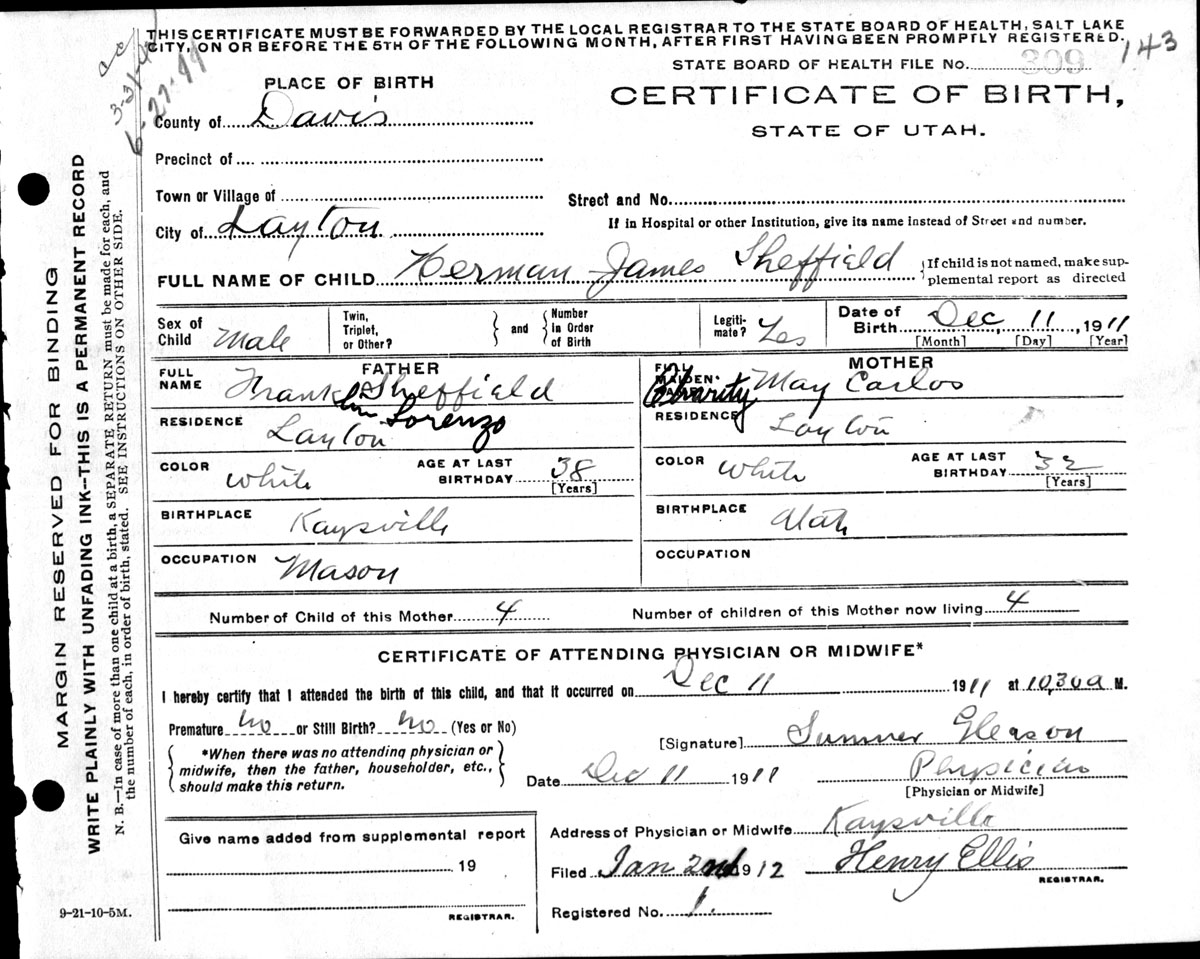 THIS CERTIFICATE MUST BE FORWARDED BY THE LOCAL REGISTRAR TO THE STATE BOARD OF HEALTH, SALT LAKE
CITY, ON OR BEFORE THE 5TH OF THE FOLLOWING MONTH, AFTER FIRST HAVING BEEN PROMPTLY REGISTERED.
143
STATE BOARD OF HEALTH FILE No. 309
PLACE OF BIRTH
CERTIFICATE OF BIRTH,
STATE OF UTAH.
County of Davis
Precinct of
Town or Village of
Street and No.
City of Layton
If in Hospital or other Institution, give its name instead of Street and number.
FULL NAME OF CHILD Herman James Sheffield {If child is not named, make sup-
plemental report as directed
Sex of Child Male
Twin, Triplet, or Other? } and { Number in Order of Birth
Legiti- mate? Yes
Date of Birth Dec, 11, 1911
[Month] [Day] [Year]
FATHER
FULL NAME Frank Sheffield
lin Lorenzo
RESIDENCE Layton
COLOR White AGE AT LAST BIRTHDAY 38
[Years]
BIRTHPLACE Kaysville
OCCUPATION Mason
MOTHER
FULL MAIDEN NAME Charity May Carlos
RESIDENCE Layton
COLOR White AGE AT LAST BIRTHDAY 32
[Years]
BIRTHPLACE Utah
OCCUPATION
Number of Child of this Mother 4 Number of children of this Mother now living 4
CERTIFICATE OF ATTENDING PHYSICIAN OR MIDWIFE*
I hereby certify that I attended the birth of this child, and that it occurred on Dec 11 1911 at 10,30 a M.
Premature No or Still Birth? No (Yes or No)
{*When there was no attending physician or
midwife, then the father, householder, etc.,
should make this return.}
[Signature] Sumner Gleason
Date Dec 11 1911 Physician
[Physician or Midwife]
Give name added from supplemental report
19
REGISTRAR.
Address of Physician or Midwife Kaysville
Filed Jan 2nd 1912 Henry Ellis
REGISTRAR.
Registered No. 1.
9-21-10-5M.
MARGIN RESERVED FOR BINDING
WRITE PLAINLY WITH UNFADING INK—THIS IS A PERMANENT RECORD
N. B.—In case of more than one child at a birth, a SEPARATE RETURN must be made for each, and
the number of each, in order of birth, stated. SEE INSTRUCTIONS ON OTHER SIDE.